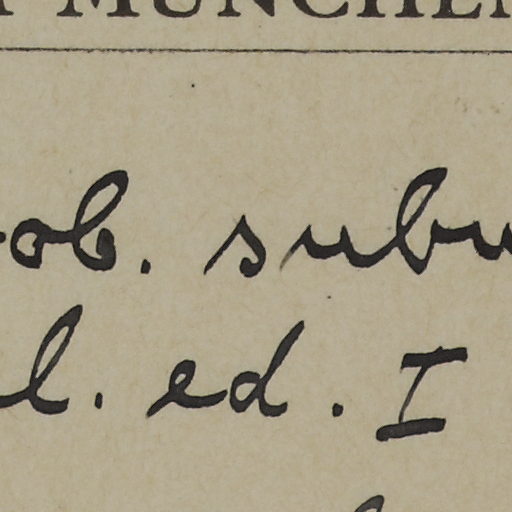 MÜNCHEN
ob. subu
l. ed. I